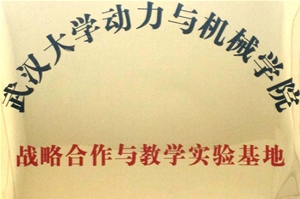 武汉大学动力与机械学院
战略合作与教学实验基地